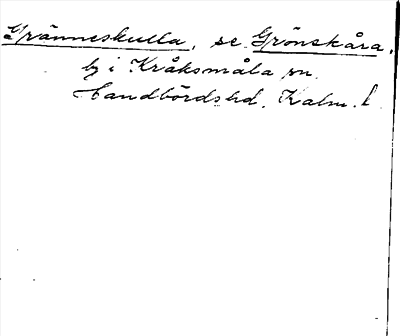 Gränneskulla, se Grönskåra,
by i Kråksmåla sn.
Handbörds hd. Kalm. l.